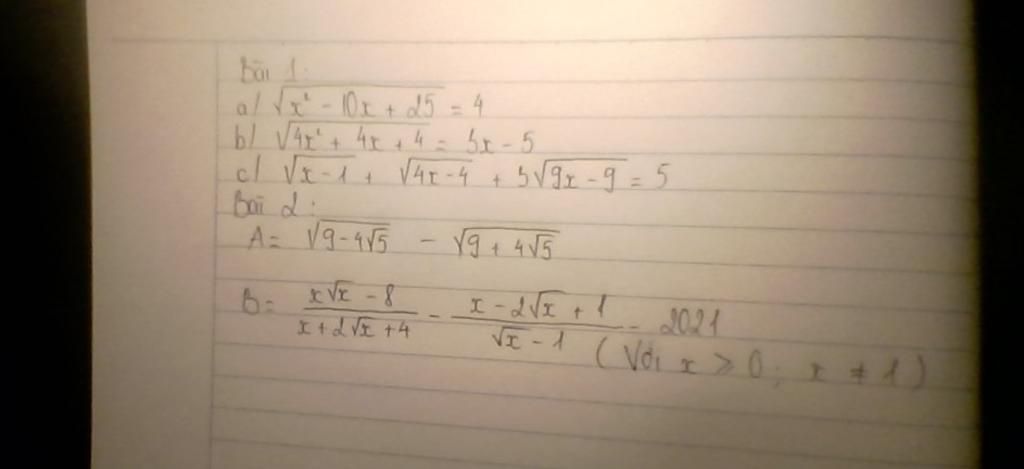 Bài 1:
a/ √(x² - 10x + 25) = 4
b/ √(4x² + 4x + 4) = 3x - 5
c/ √(x - 1) + √(4x - 4) + 3√(9x - 9) = 5
Bài 2:
A = √(9 - 4√5) - √(9 + 4√5)
B = (x√x - 8)/(x + 2√x + 4) - (x - 2√x + 1)/(√x - 1) - 2021
(Với x ≥ 0; x ≠ 1)